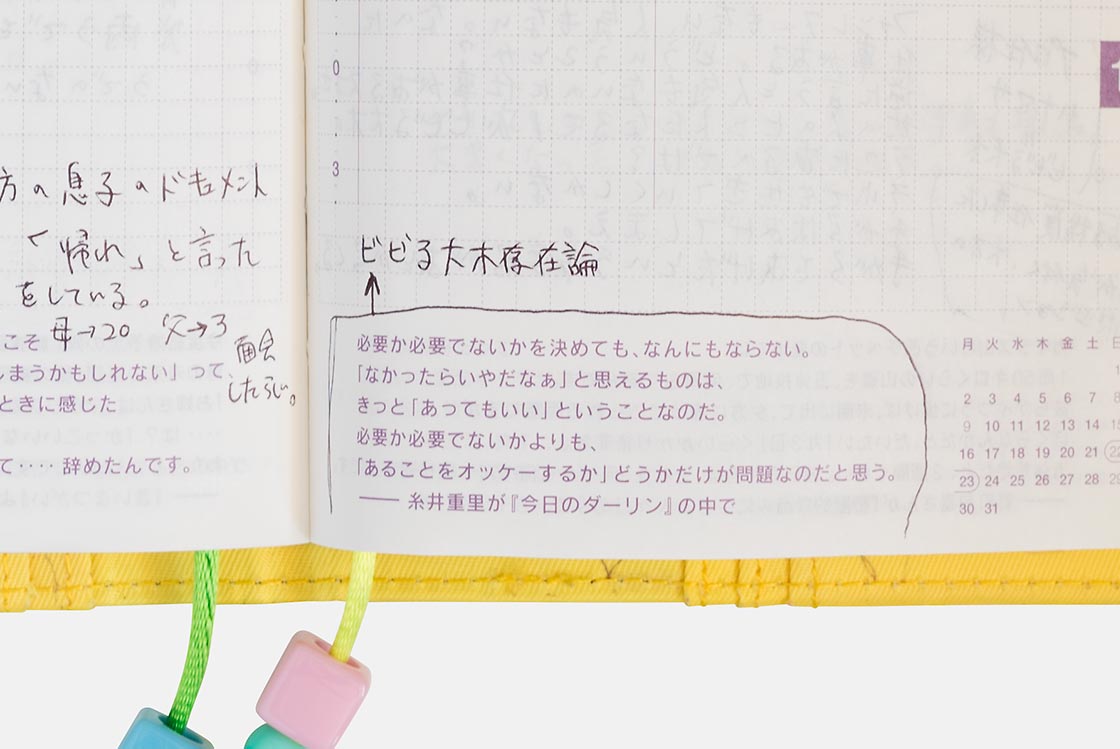 方の息子のドキュメント
「帰れ」と言った
をしている。
母→20 父→3
面会
したらじ。
こそ
しまうかもしれない」って、
ときに感じた
て… 辞めたんです。
0
3
ビビる大木存在論
必要か必要でないかを決めても、なんにもならない。
「なかったらいやだなぁ」と思えるものは、
きっと「あってもいい」ということなのだ。
必要か必要でないかよりも、
「あることをオッケーするか」どうかだけが問題なのだと思う。
―― 糸井重里が『今日のダーリン』の中で
1
月 火 水 木 金 土 日
1
2 3 4 5 6 7 8
9 10 11 12 13 14 15
16 17 18 19 20 21 22
23 24 25 26 27 28 29
30 31